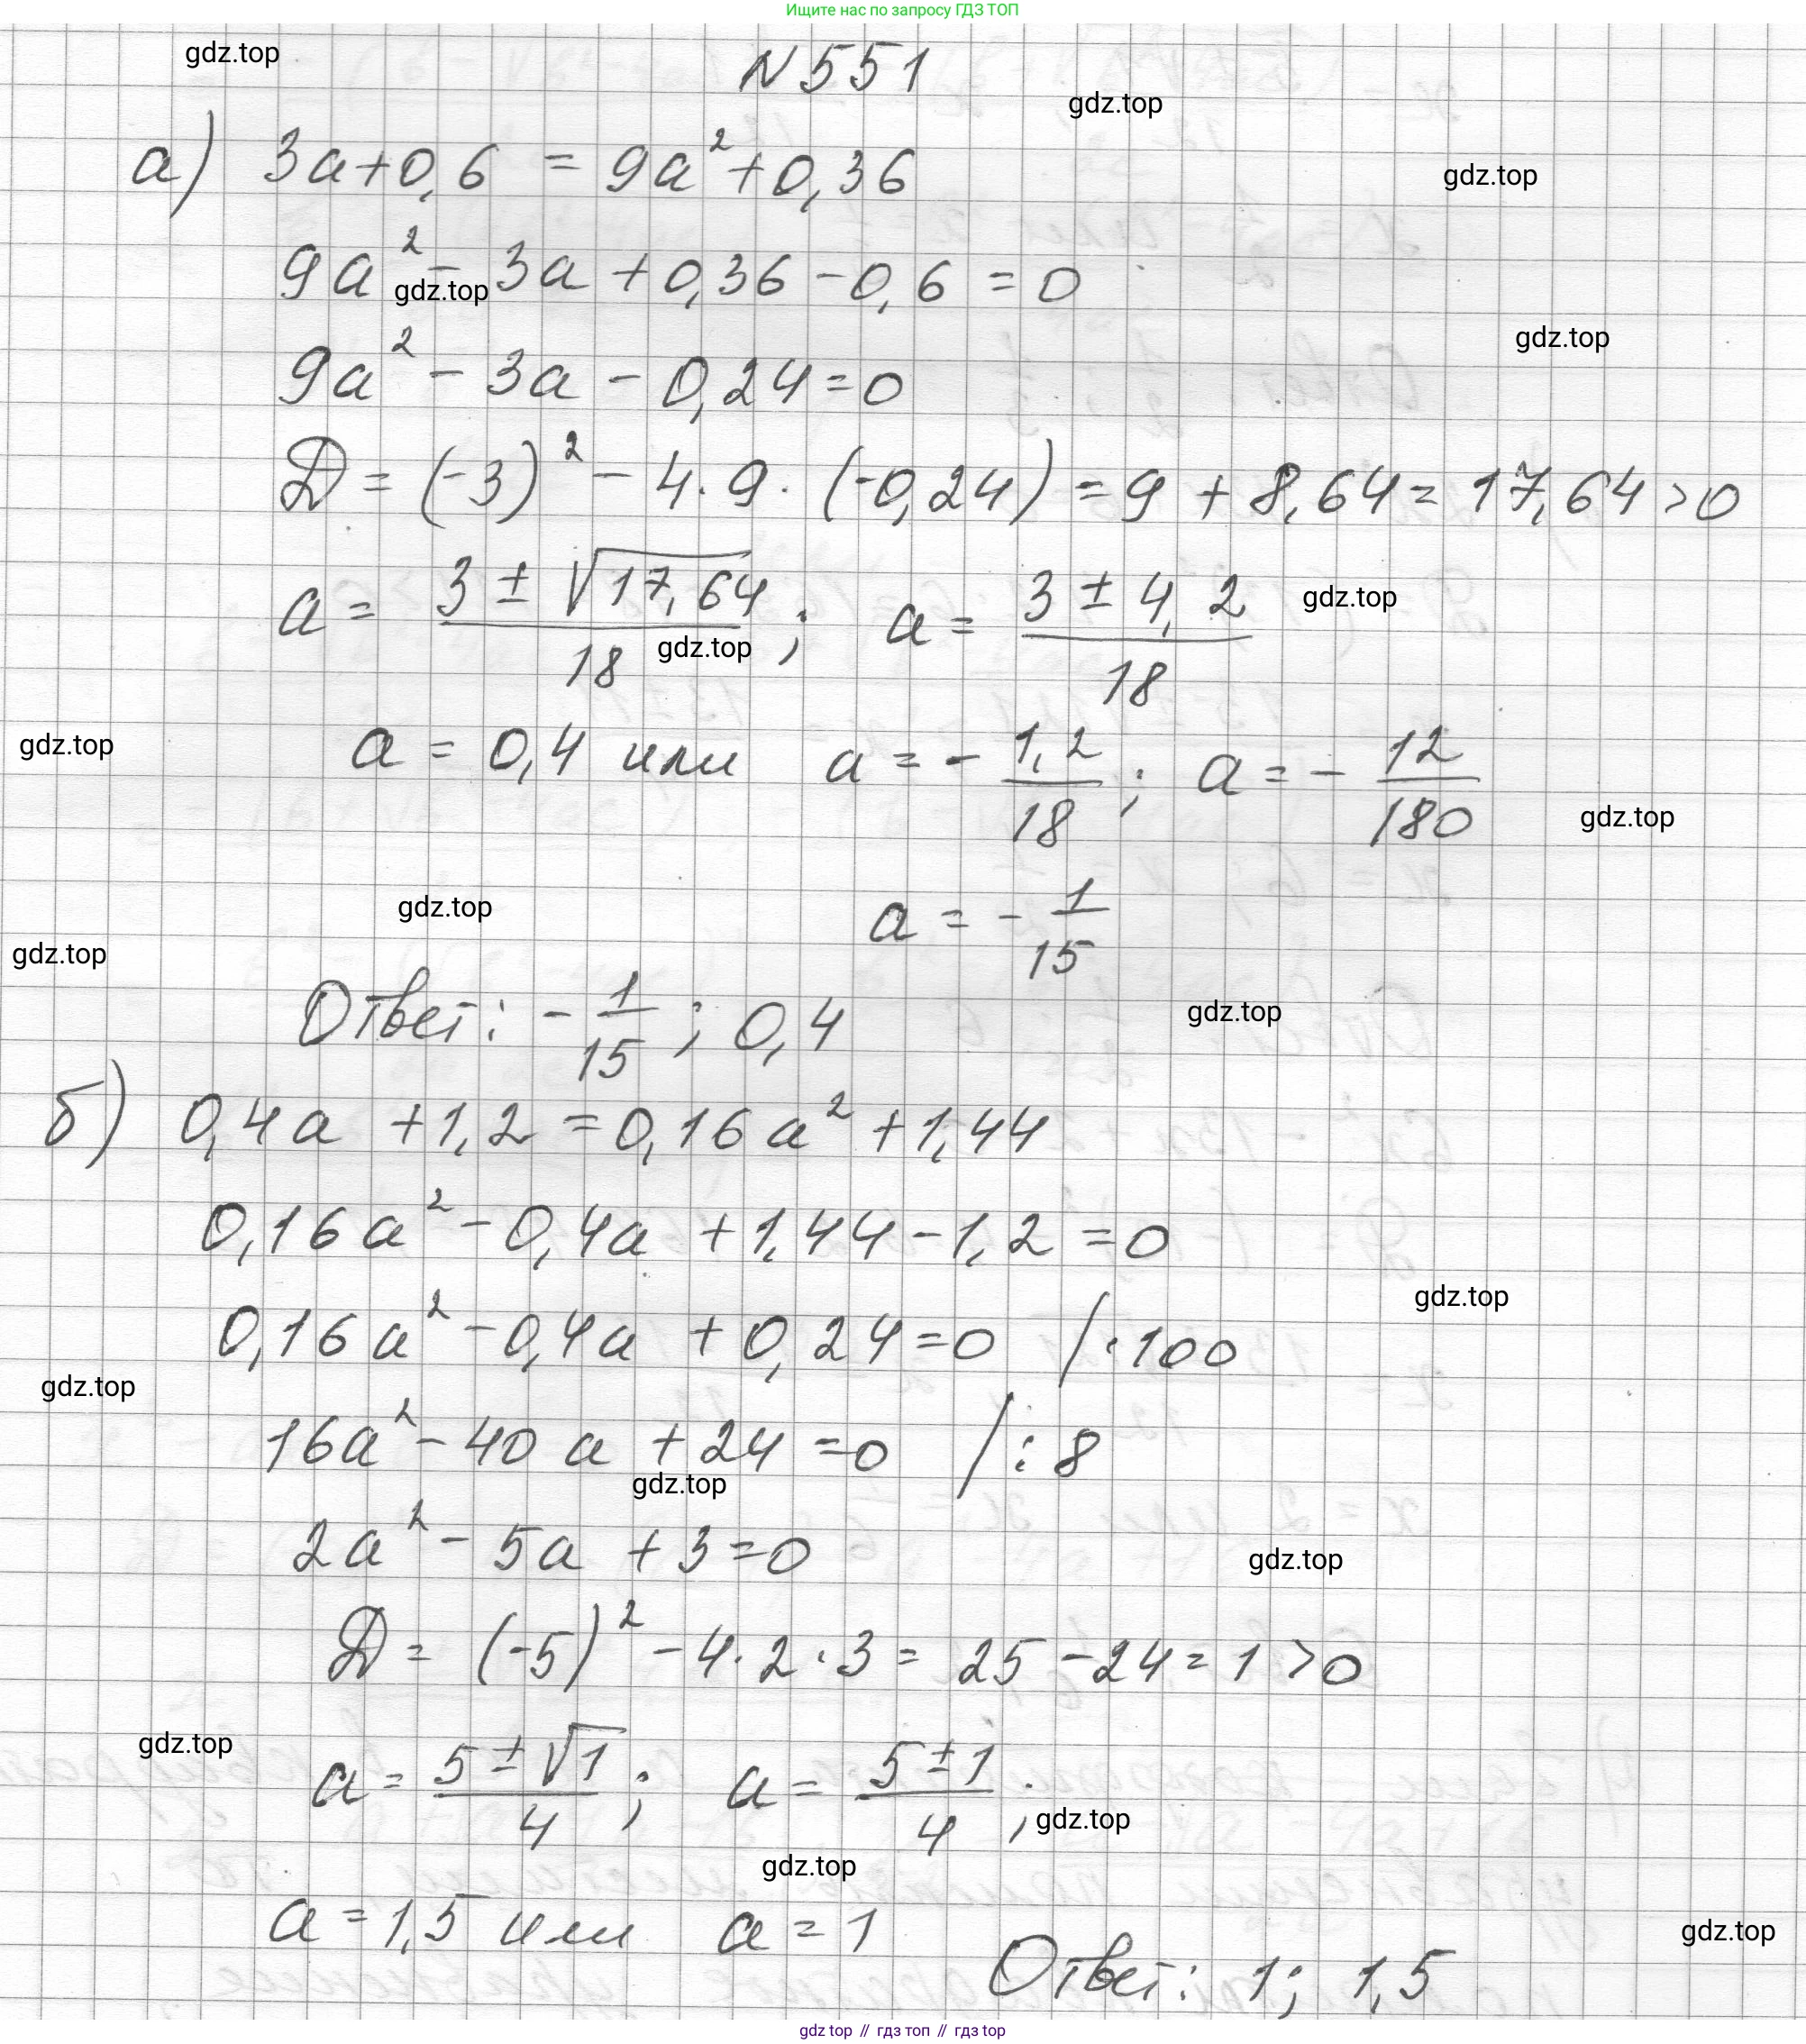 Ищите нас по запросу ГДЗ ТОП
gdz.top
N551
gdz.top
а) 3a+0,6 = 9a²+0,36
gdz.top
9a² - 3a + 0,36 - 0,6 = 0
gdz.top
gdz.top
9a² - 3a - 0,24 = 0
D = (-3)² - 4·9·(-0,24) = 9 + 8,64 = 17,64 > 0
a = (3 ± √17,64)/18 ; a = (3 ± 4,2)/18
gdz.top
gdz.top
gdz.top
a = 0,4 или a = - 1,2/18 ; a = - 12/180
gdz.top
gdz.top
a = - 1/15
gdz.top
Ответ: - 1/15 ; 0,4
gdz.top
б) 0,4a + 1,2 = 0,16a² + 1,44
0,16a² - 0,4a + 1,44 - 1,2 = 0
gdz.top
0,16a² - 0,4a + 0,24 = 0 /·100
gdz.top
16a² - 40a + 24 = 0 / : 8
gdz.top
2a² - 5a + 3 = 0
gdz.top
D = (-5)² - 4·2·3 = 25 - 24 = 1 > 0
gdz.top
a = (5 ± √1)/4 ; a = (5 ± 1)/4 ;
gdz.top
gdz.top
a = 1,5 или a = 1
gdz.top
Ответ: 1; 1,5
gdz top // гдз топ // гдз top